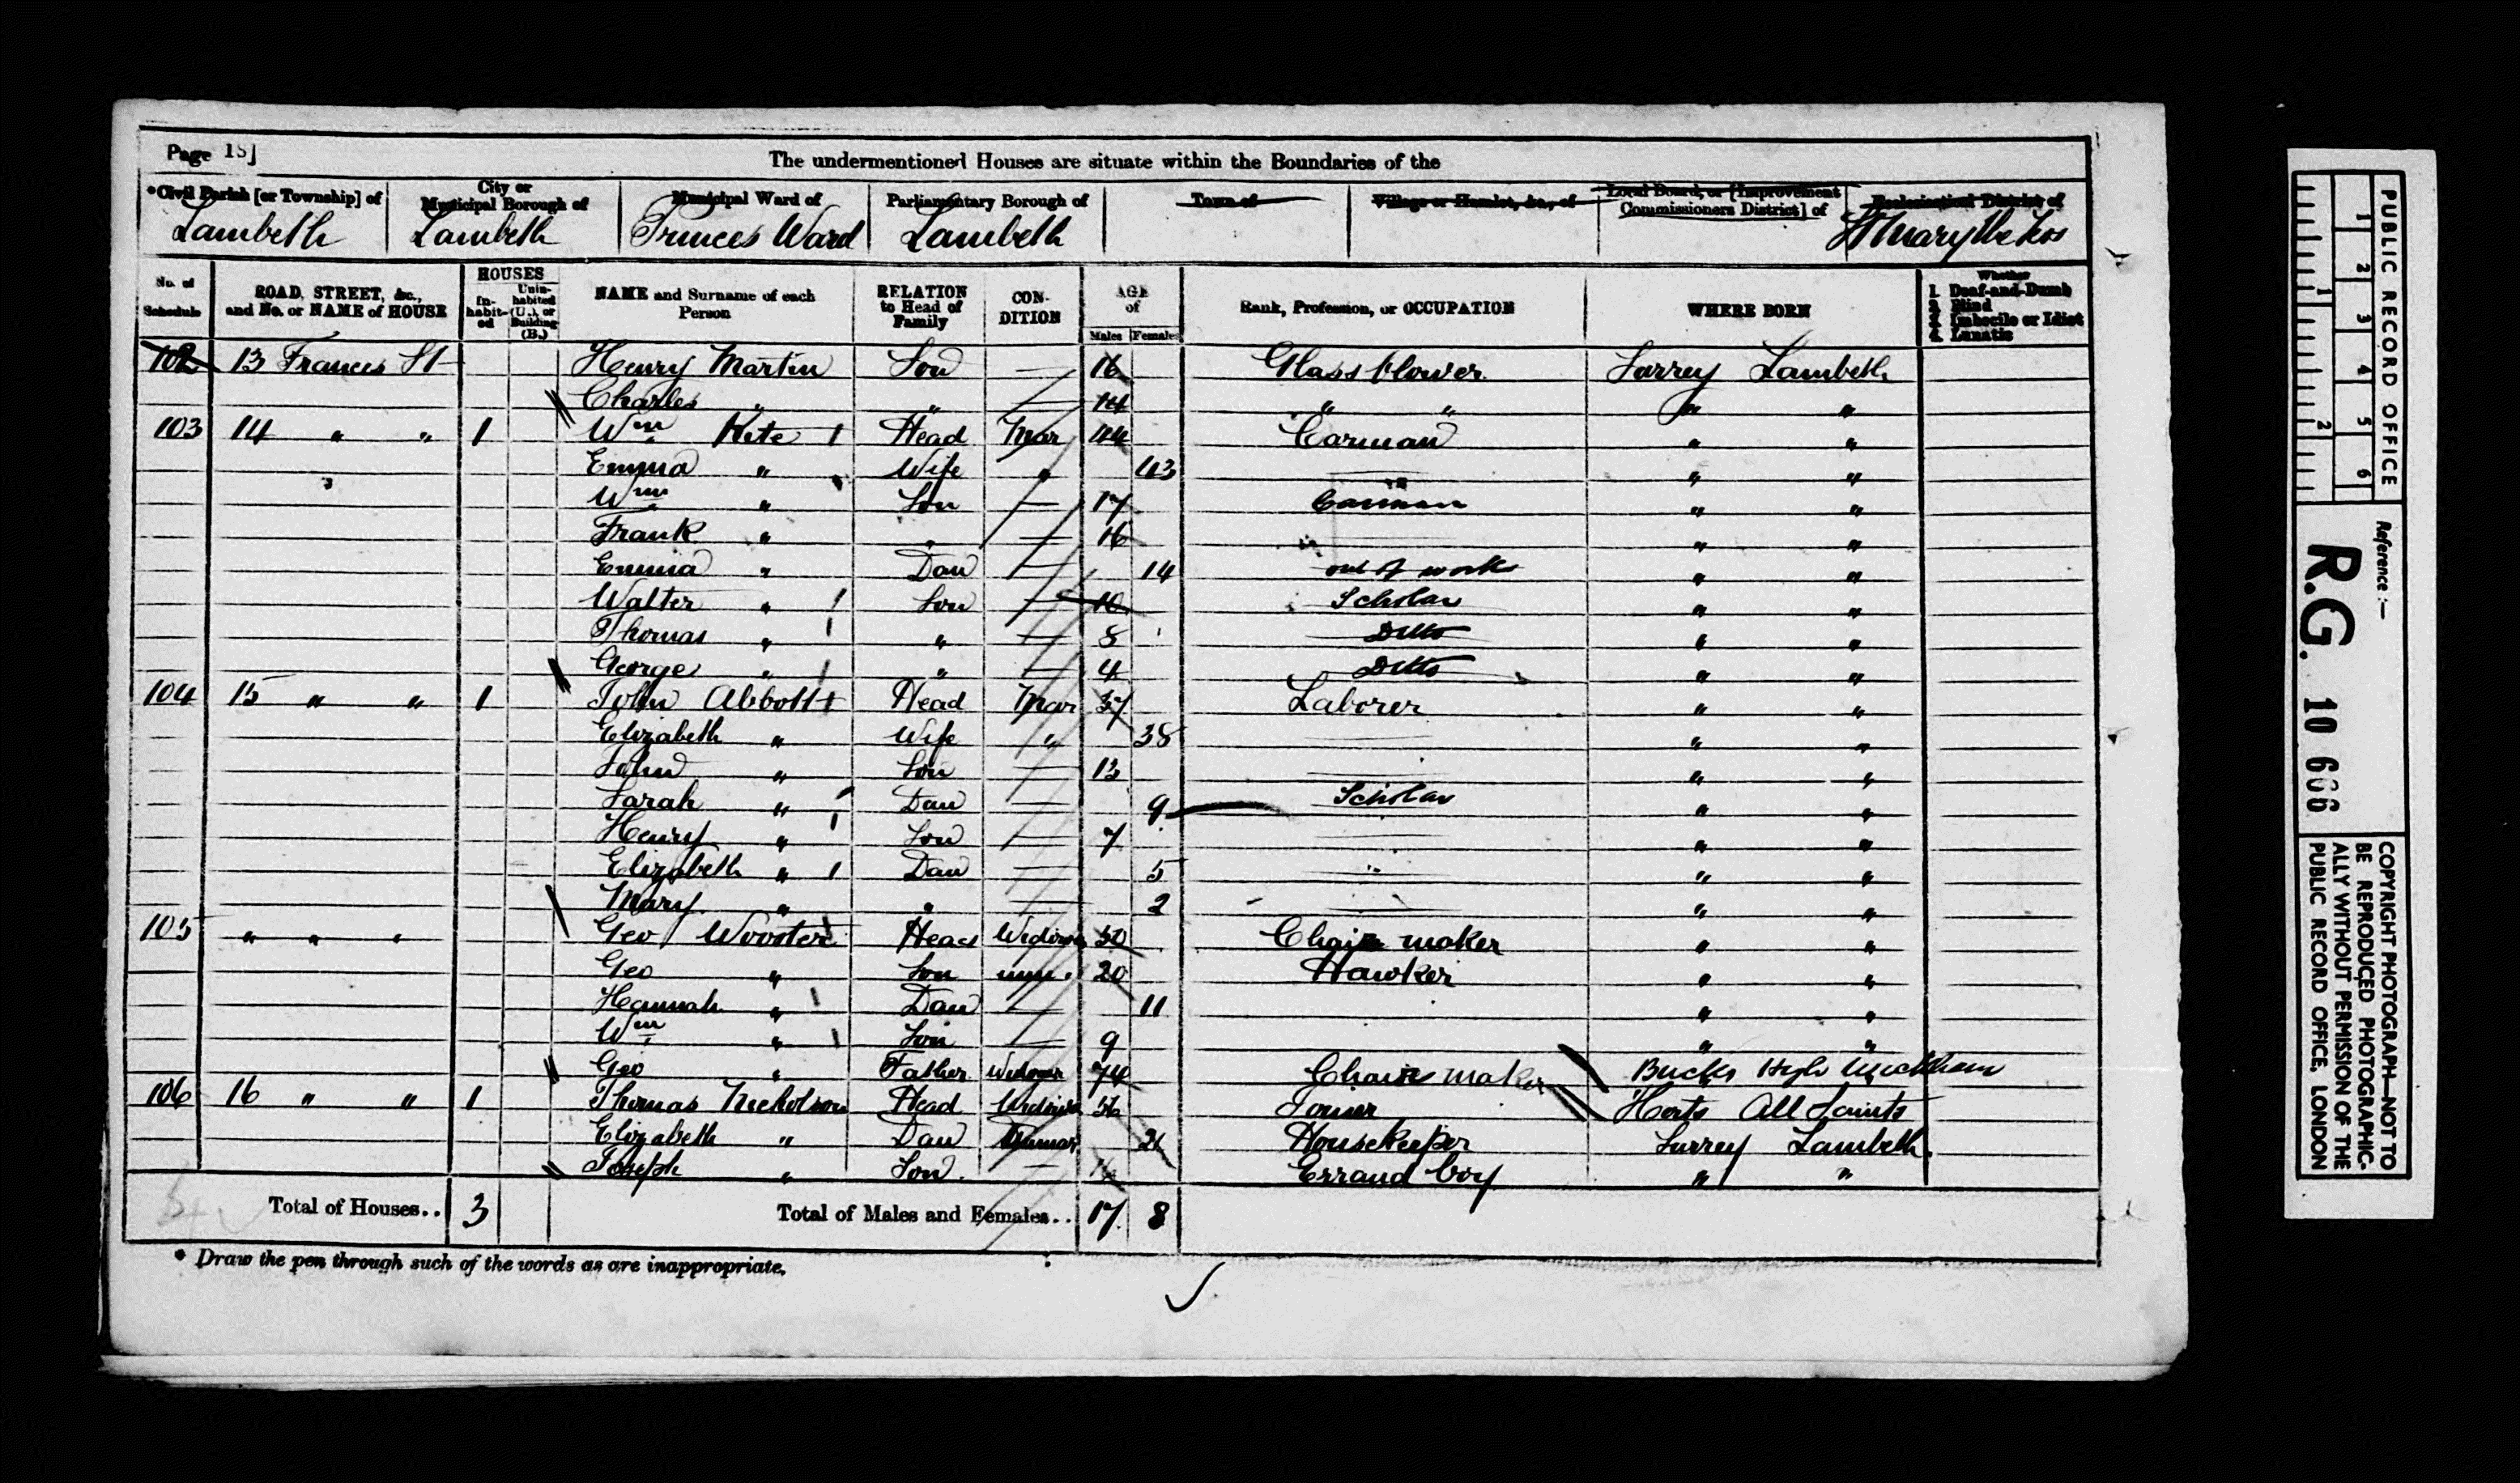 Page 18]
The undermentioned Houses are situate within the Boundaries of the
*Civil Parish [or Township] of City or Municipal Borough of Municipal Ward of Parliamentary Borough of Town of Village or Hamlet, &c., of Local Board, or [Improvement Commissioners District] of Ecclesiastical District of
Lambeth Lambeth Princes Ward Lambeth St Mary the Less
No. of Schedule ROAD, STREET, &c., and No. or NAME of HOUSE HOUSES In-habit-ed Unin-habited (U.), or Building (B.) NAME and Surname of each Person RELATION to Head of Family CON-DITION AGE of Males Females Rank, Profession, or OCCUPATION WHERE BORN Whether 1. Deaf-and-Dumb 2. Blind 3. Imbecile or Idiot 4. Lunatic
102 13 Frances St Henry Martin Son — 16 Glass blower Surrey Lambeth
Charles " " — 14 " " " "
103 14 " " 1 Wm Kite Head Mar 44 Carman " "
Emma " Wife " 43 " "
Wm " Son — 17 Carman " "
Frank " " — 16 " " "
Emma " Dau — 14 out of work " "
Walter " Son — 10 Scholar " "
Thomas " " — 8 Ditto " "
George " " — 4 Ditto " "
104 15 " " 1 John Abbott Head Mar 37 Laborer " "
Elizabeth " Wife " 38 " "
John " Son — 13 " "
Sarah " Dau — 9 Scholar " "
Henry " Son — 7 " "
Elizabeth " Dau — 5 " " "
Mary " " — 2 " "
105 " " " Geo Wooster Head Widower 50 Chair maker " "
Geo " Son unm. 20 Hawker " "
Hannah " Dau — 11 " "
Wm " Son — 9 " "
Geo " Father Widower 74 Chair maker Bucks High Wickham
106 16 " " 1 Thomas Nicholson Head Widower 56 Joiner Herts All Saints
Elizabeth " Dau Unmar 21 Housekeeper Surrey Lambeth
Joseph " Son. — Errand boy " "
Total of Houses.. 3 Total of Males and Females.. 17 8
* Draw the pen through such of the words as are inappropriate.
PUBLIC RECORD OFFICE
1 2 3 4 5 6
1 2
Reference :—
R.G. 10 666
COPYRIGHT PHOTOGRAPH—NOT TO
BE REPRODUCED PHOTOGRAPHIC-
ALLY WITHOUT PERMISSION OF THE
PUBLIC RECORD OFFICE, LONDON